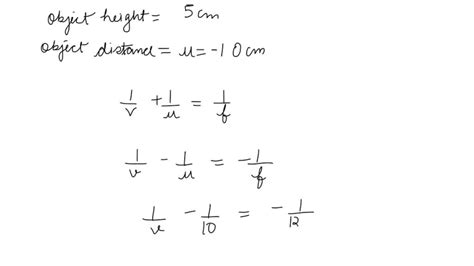 object height = 5cm
object distance = u = -10cm
1/v + 1/u = 1/f
1/v - 1/u = -1/f
1/v - 1/10 = -1/12